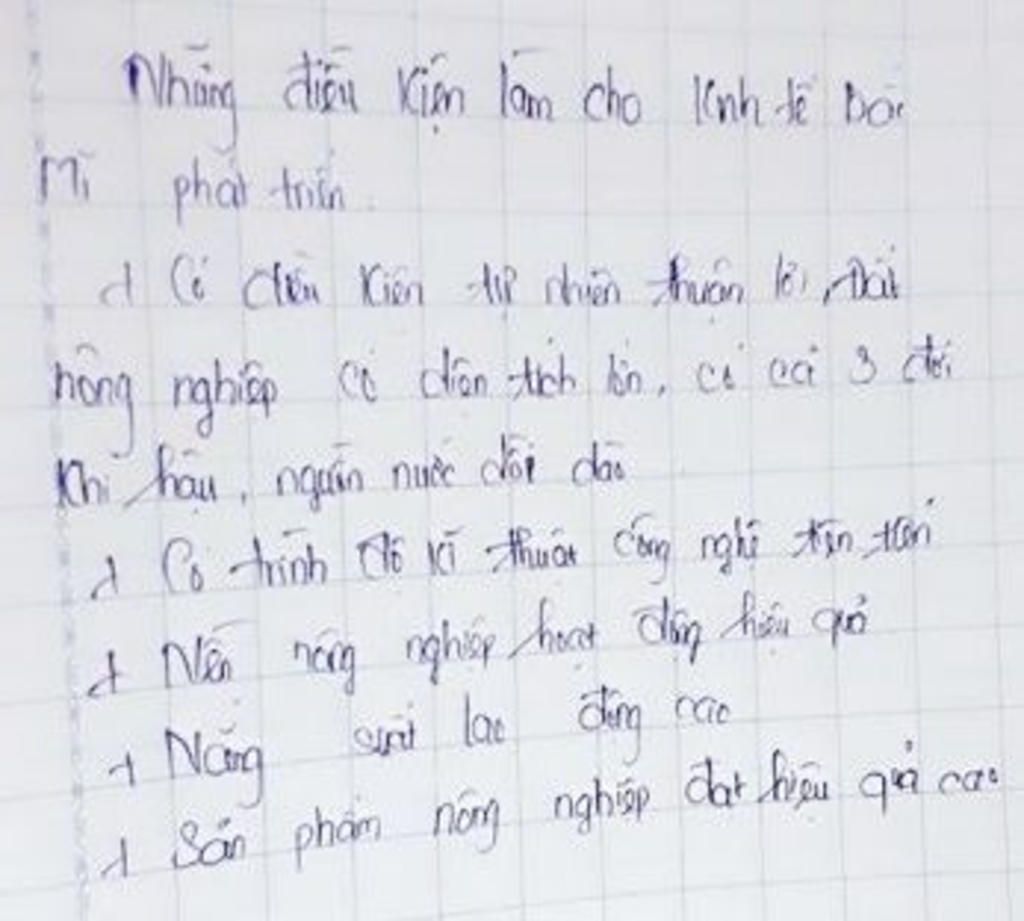 Những điều kiện làm cho kinh tế Bắc
Mĩ phát triển.
+ Có điều kiện tự nhiên thuận lợi, Đất
nông nghiệp có diện tích lớn, có cả 3 đới
khí hậu, nguồn nước dồi dào
+ Có trình độ kĩ thuật công nghệ tiên tiến
+ Nền nông nghiệp hoạt động hiệu quả
+ Năng suất lao động cao
+ Sản phẩm nông nghiệp đạt hiệu quả cao